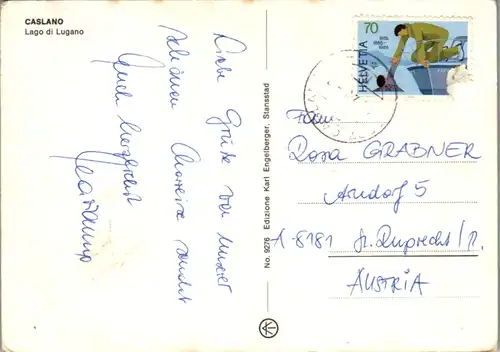 CASLANO
Lago di Lugano
Liebe Grüße von unserer
schönen
sendet
Euch herzlichst
No. 9276 Edizione Karl Engelberger, Stansstad
70
HELVETIA
Rosa GRABNER
Arndorf 5
A-8181 St. Ruprecht/R.
AUSTRIA